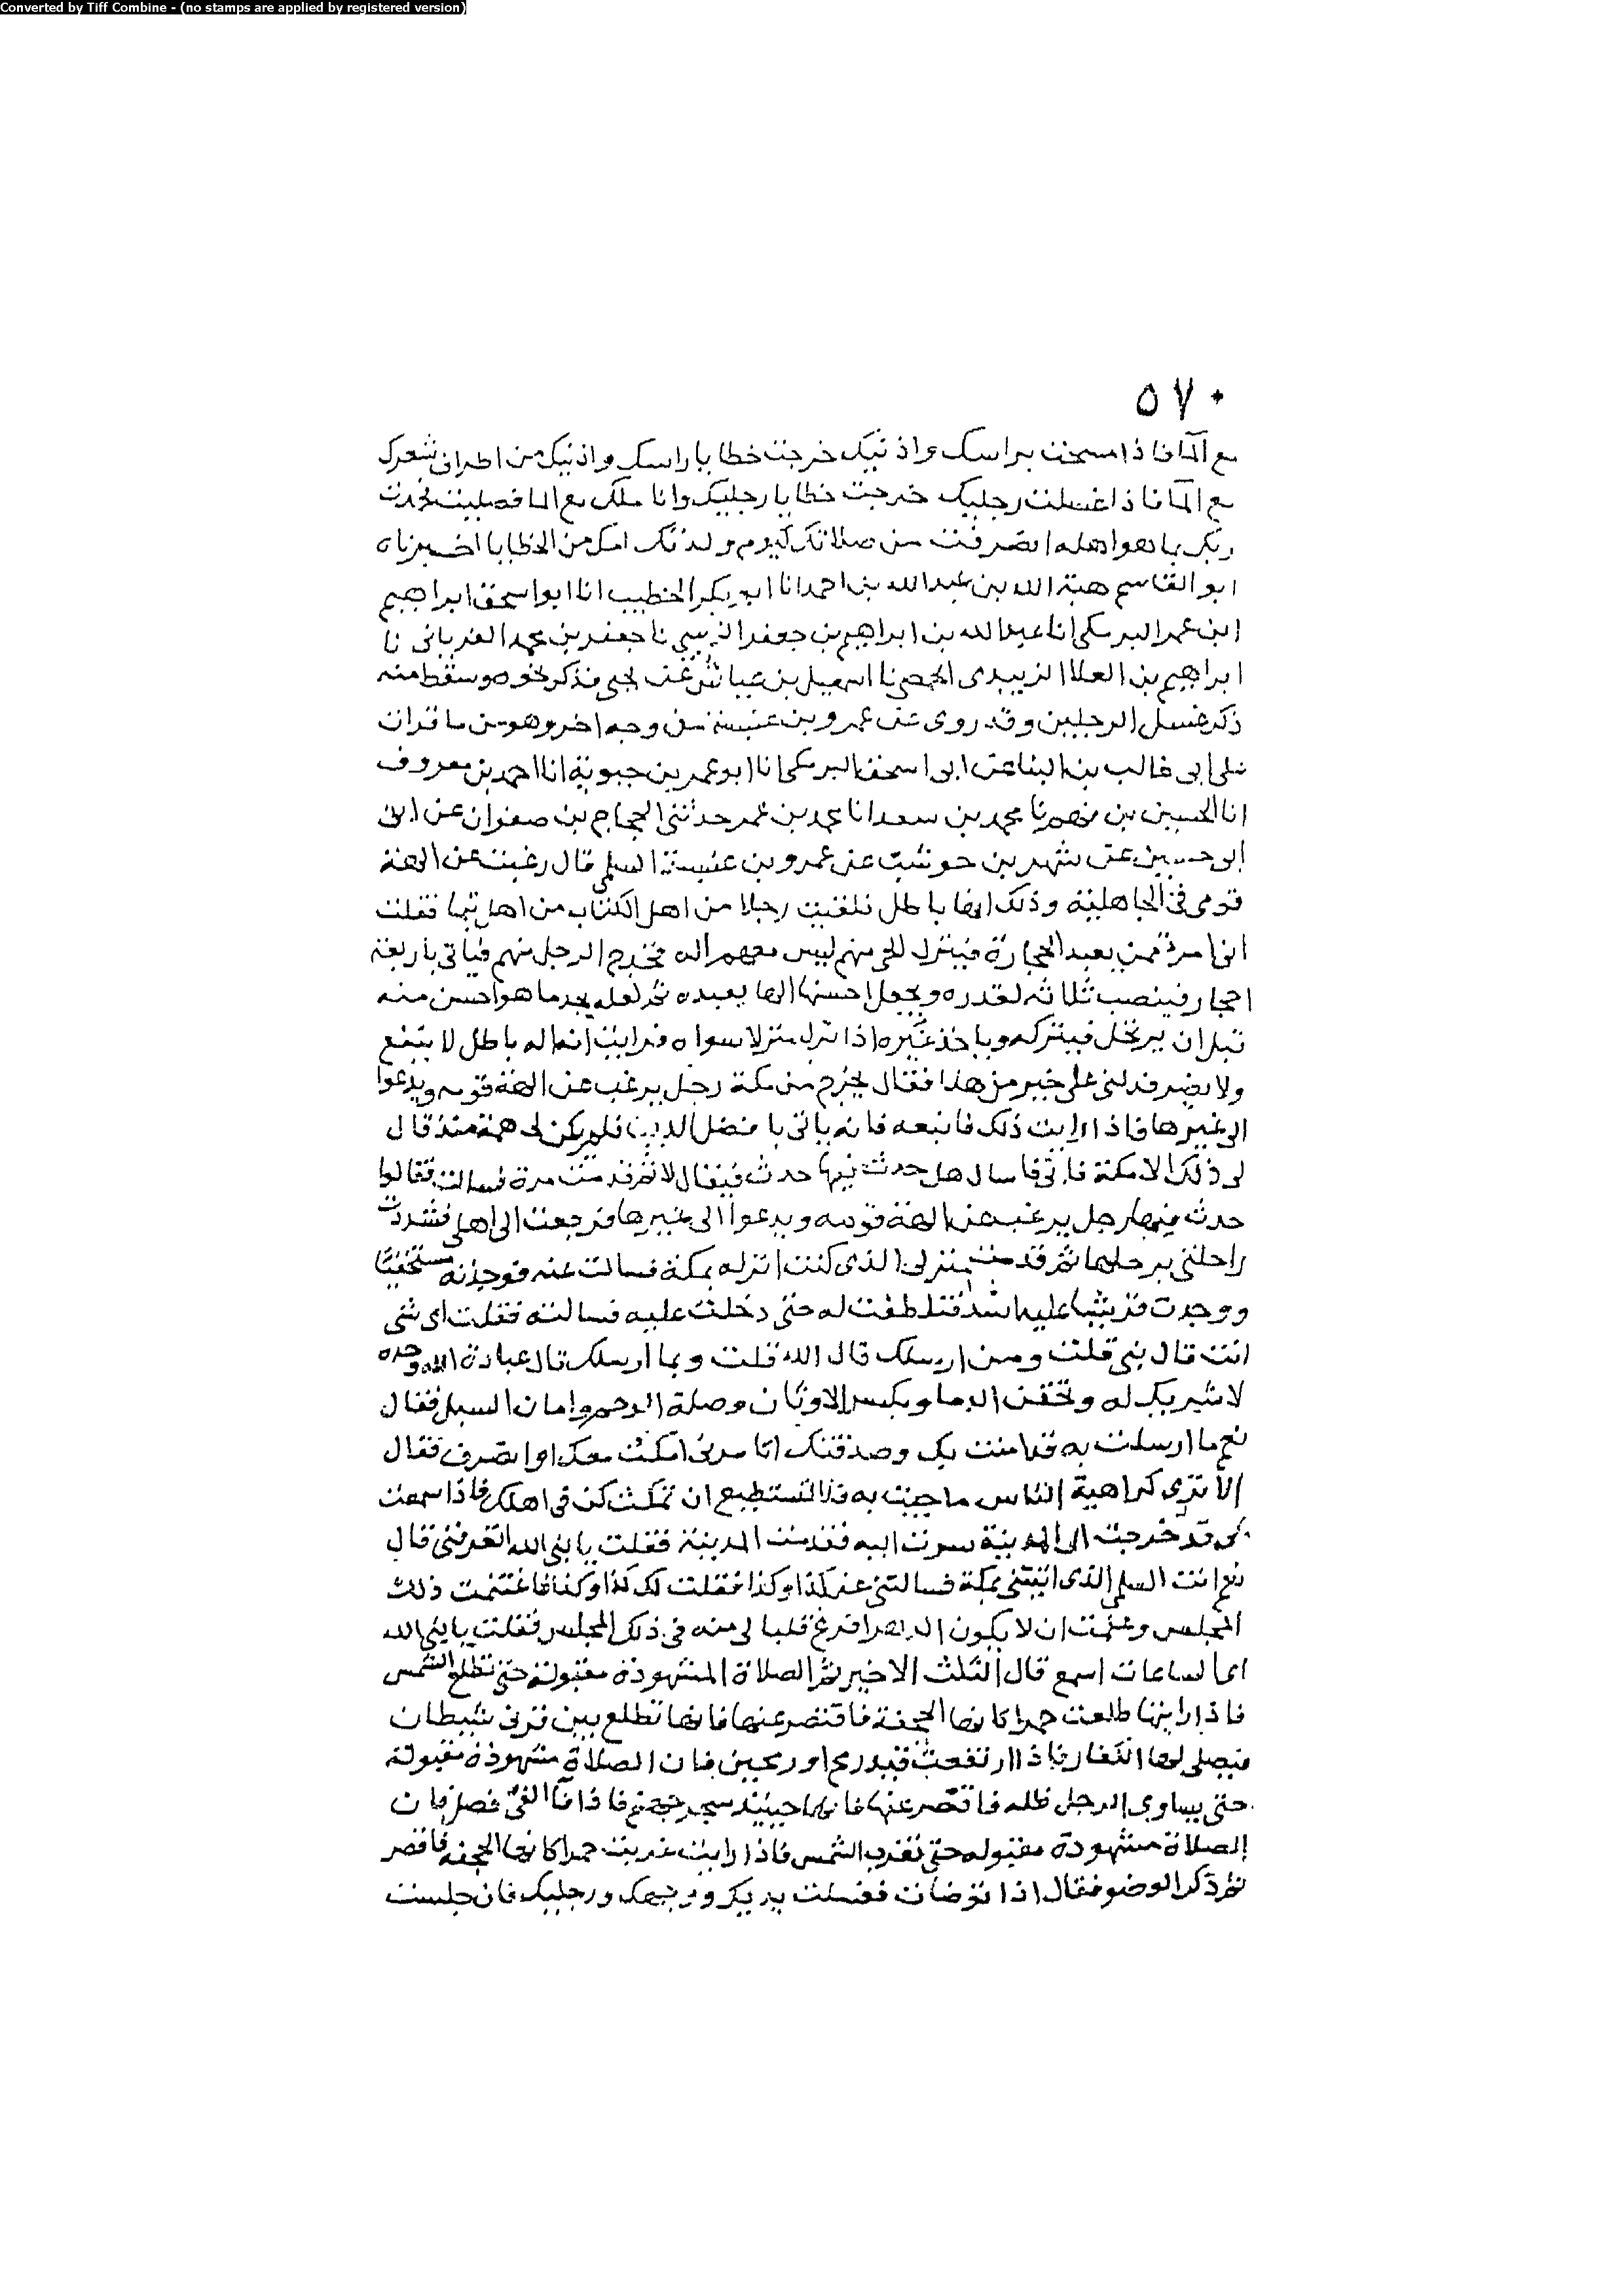 Converted by Tiff Combine - (no stamps are applied by registered version)
٥٧٠
مع الما فاذا مسحت براسك واذنيك خرجت خطايا راسك واذنيك من اطراف شعرك
مع الما فاذا غسلت رجليك خرجت خطايا رجليك وانا ملك مع الما فصليت فحمدت
ربك بما هو اهله انصرفت من صلاتك كيوم ولدتك امك من الخطايا اخبرناه
ابو القاسم هبة الله بن عبد الله بن احمد انا ابو بكر الخطيب انا ابو اسحق ابراهيم
ابن عمر البرمكى انا عبد الله بن ابراهيم بن جعفر الزبيبي نا جعفر بن محمد الفريابى نا
ابراهيم بن العلا الزبيدى الحمصى نا اسمعيل بن عياش عن يحيى فذكر نحوه وسقط منه
ذكر غسل الرجلين وقد روى عن عمرو بن عنبسة من وجه اخر وهو من ما قرات
على ابى غالب بن البنا عن ابى اسحق البرمكى انا ابو عمر بن حيوية انا احمد بن معروف
انا الحسين بن فهم نا محمد بن سعد انا محمد بن عمر حدثنى الحجاج بن صفوان عن ابن
ابى حسين عن شهر بن حوشب عن عمرو بن عنبسة السلمى قال رغبت عن الهة
قومى فى الجاهلية وذلك انها باطل فلقيت رجلا من اهل الكتاب من اهل تيما فقلت
انى امرؤ ممن يعبد الحجارة فينزل الحى منهم ليس معهم اله فخرج الرجل منهم فياتى باربعة
احجار فينصب ثلاثة لقدره ويجعل احسنها الها يعبده ثم لعله يجد ما هو احسن منه
قبل ان يرتحل فيتركه وياخذ غيره اذا نزل منزلا سواه فرايت انه اله باطل لا ينفع
ولا يضر فدلنى على خير من هذا فقال يخرج من مكة رجل يرغب عن الهة قومه ويدعوا
الى غيرها فاذا رايت ذلك فاتبعه فانه ياتى بافضل الدين فلم يكن لى همة منذ قال
لى ذلك الا مكة فاتى فاسال هل حدث فيها حدث فيقال لا ثم قدمت مرة فسالت فقالوا
حدث فيها رجل يرغب عن الهة قومه ويدعوا الى غيرها فرجعت الى اهلى فشددت
راحلتى برحلها ثم قدمت منزلى الذى كنت انزله بمكة فسالت عنه فوجدته مستخفيا
ووجدت قريشا عليه اشد فتلطفت له حتى دخلت عليه فسالته فقلت اى شى
انت قال نبى قلت ومن ارسلك قال الله قلت وبما ارسلك قال عبادة الله وحده
لا شريك له وتحقن الدما وبكسر الاوثان وصلة الرحم وامان السبل فقال
نعم ما ارسلت به قد امنت بك وصدقتك اتا مرنى امكث معك او انصرف فقال
الا ترى كراهية الناس ما جيت به فلا تستطيع ان تمكث كن فى اهلك فاذا سمعت
بى قد خرجت الى المدينة سرت اليه فقدمت المدينة فقلت يا نبى الله اتعرفنى قال
نعم انت السلمى الذى اتيتنى بمكة فسالتنى عن كذا وكذا فقلت لك كذا وكذا فاغتنمت ذلك
المجلس وعلمت ان لا يكون الدهر افرغ قلبا لى منه فى ذلك المجلس فقلت يا نبى الله
اى الساعات اسمع قال الثلث الاخير ثم الصلاة المشهودة مقبولة حتى تطلع الشمس
فاذا رايتها طلعت حمرا كانها الحجفة فاقصر عنها فانها تطلع بين قرنى شيطان
فيصلى لها الكفار فاذا ارتفعت قيد رمح او رمحين فان الصلاة مشهودة مقبولة
حتى يساوى الرجل ظله فاقصر عنها فانها حينيذ تسجر جهنم فاذا فا الفى فصل فان
الصلاة مشهودة مقبوله حتى تغرب الشمس فاذا رايت غربت حمرا كانها الحجفة فاقصر
ثم ذكر الوضو فقال اذا توضات فغسلت يديك ووجهك ورجليك فان جلست